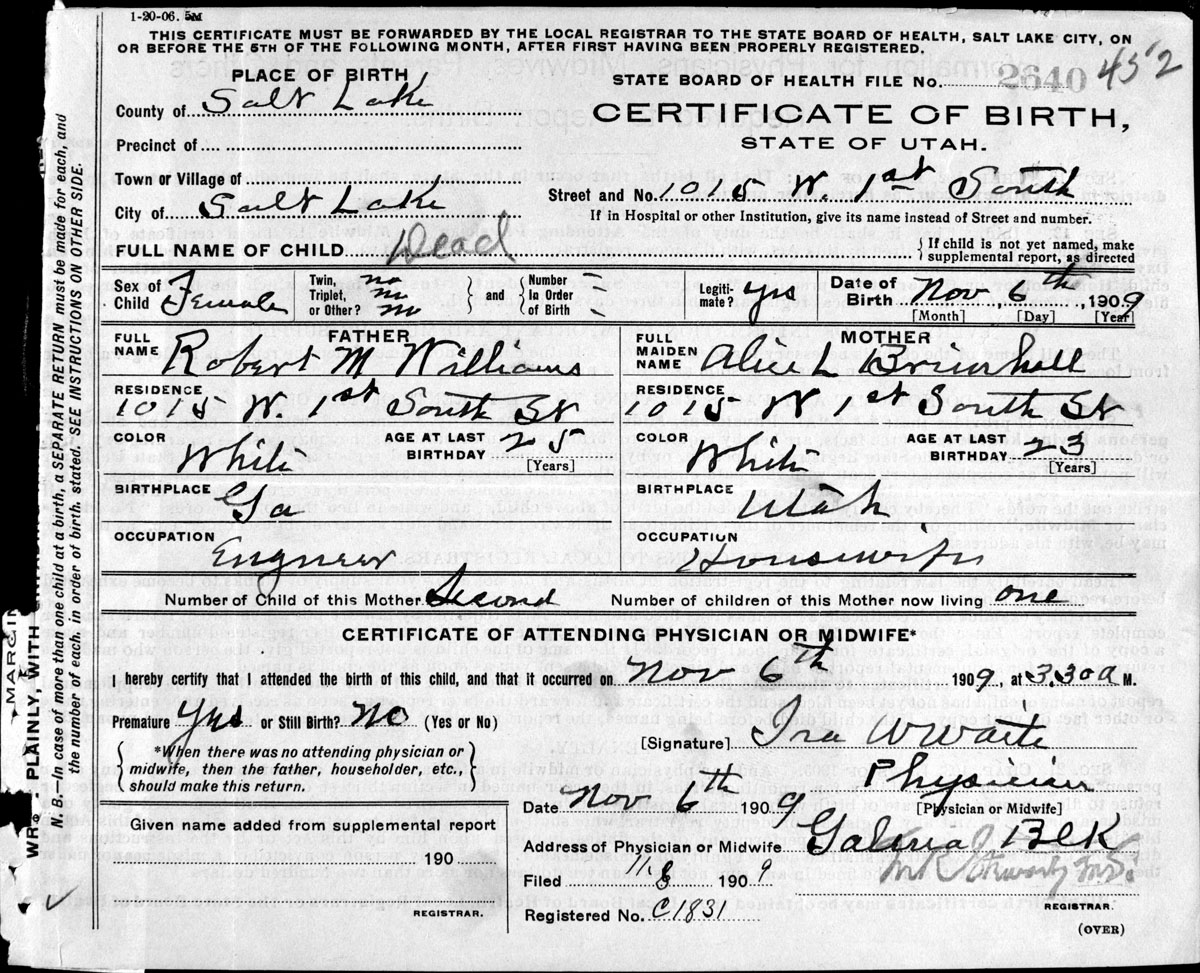 1-20-06. 5M
THIS CERTIFICATE MUST BE FORWARDED BY THE LOCAL REGISTRAR TO THE STATE BOARD OF HEALTH, SALT LAKE CITY, ON
OR BEFORE THE 5TH OF THE FOLLOWING MONTH, AFTER FIRST HAVING BEEN PROPERLY REGISTERED.
PLACE OF BIRTH
STATE BOARD OF HEALTH FILE No. 2640 452
County of Salt Lake
CERTIFICATE OF BIRTH,
STATE OF UTAH.
Precinct of
Town or Village of
Street and No. 1015 W. 1st South
City of Salt Lake
If in Hospital or other Institution, give its name instead of Street and number.
FULL NAME OF CHILD Dead
{ If child is not yet named, make
supplemental report, as directed
Sex of Child Female
Twin, Triplet, or Other? no no no } and { Number In Order of Birth –
Legitimate? yes
Date of Birth Nov 6th, 1909
[Month] [Day] [Year]
FATHER
FULL NAME Robert M Williams
RESIDENCE 1015 W. 1st South St
COLOR White AGE AT LAST BIRTHDAY 25 [Years]
BIRTHPLACE Ga
OCCUPATION Engneer
MOTHER
FULL MAIDEN NAME Alice L Brimhall
RESIDENCE 1015 W 1st South St
COLOR White AGE AT LAST BIRTHDAY 23 [Years]
BIRTHPLACE Utah
OCCUPATION Housewife
Number of Child of this Mother Second Number of children of this Mother now living one
CERTIFICATE OF ATTENDING PHYSICIAN OR MIDWIFE*
I hereby certify that I attended the birth of this child, and that it occurred on Nov 6th 1909, at 3.30 a M.
Premature Yes or Still Birth? No (Yes or No)
{ *When there was no attending physician or
midwife, then the father, householder, etc.,
should make this return. }
[Signature] Ira W Waite
Physician
[Physician or Midwife]
Date Nov 6th 1909
Given name added from supplemental report
190
REGISTRAR.
Address of Physician or Midwife Galena Blk
Filed 11 8 1909
Registered No. C1831
REGISTRAR.
(OVER)
MARGIN
PLAINLY, WITH
N. B. In case of more than one child at a birth, a SEPARATE RETURN must be made for each, and
the number of each, in order of birth, stated. SEE INSTRUCTIONS ON OTHER SIDE.